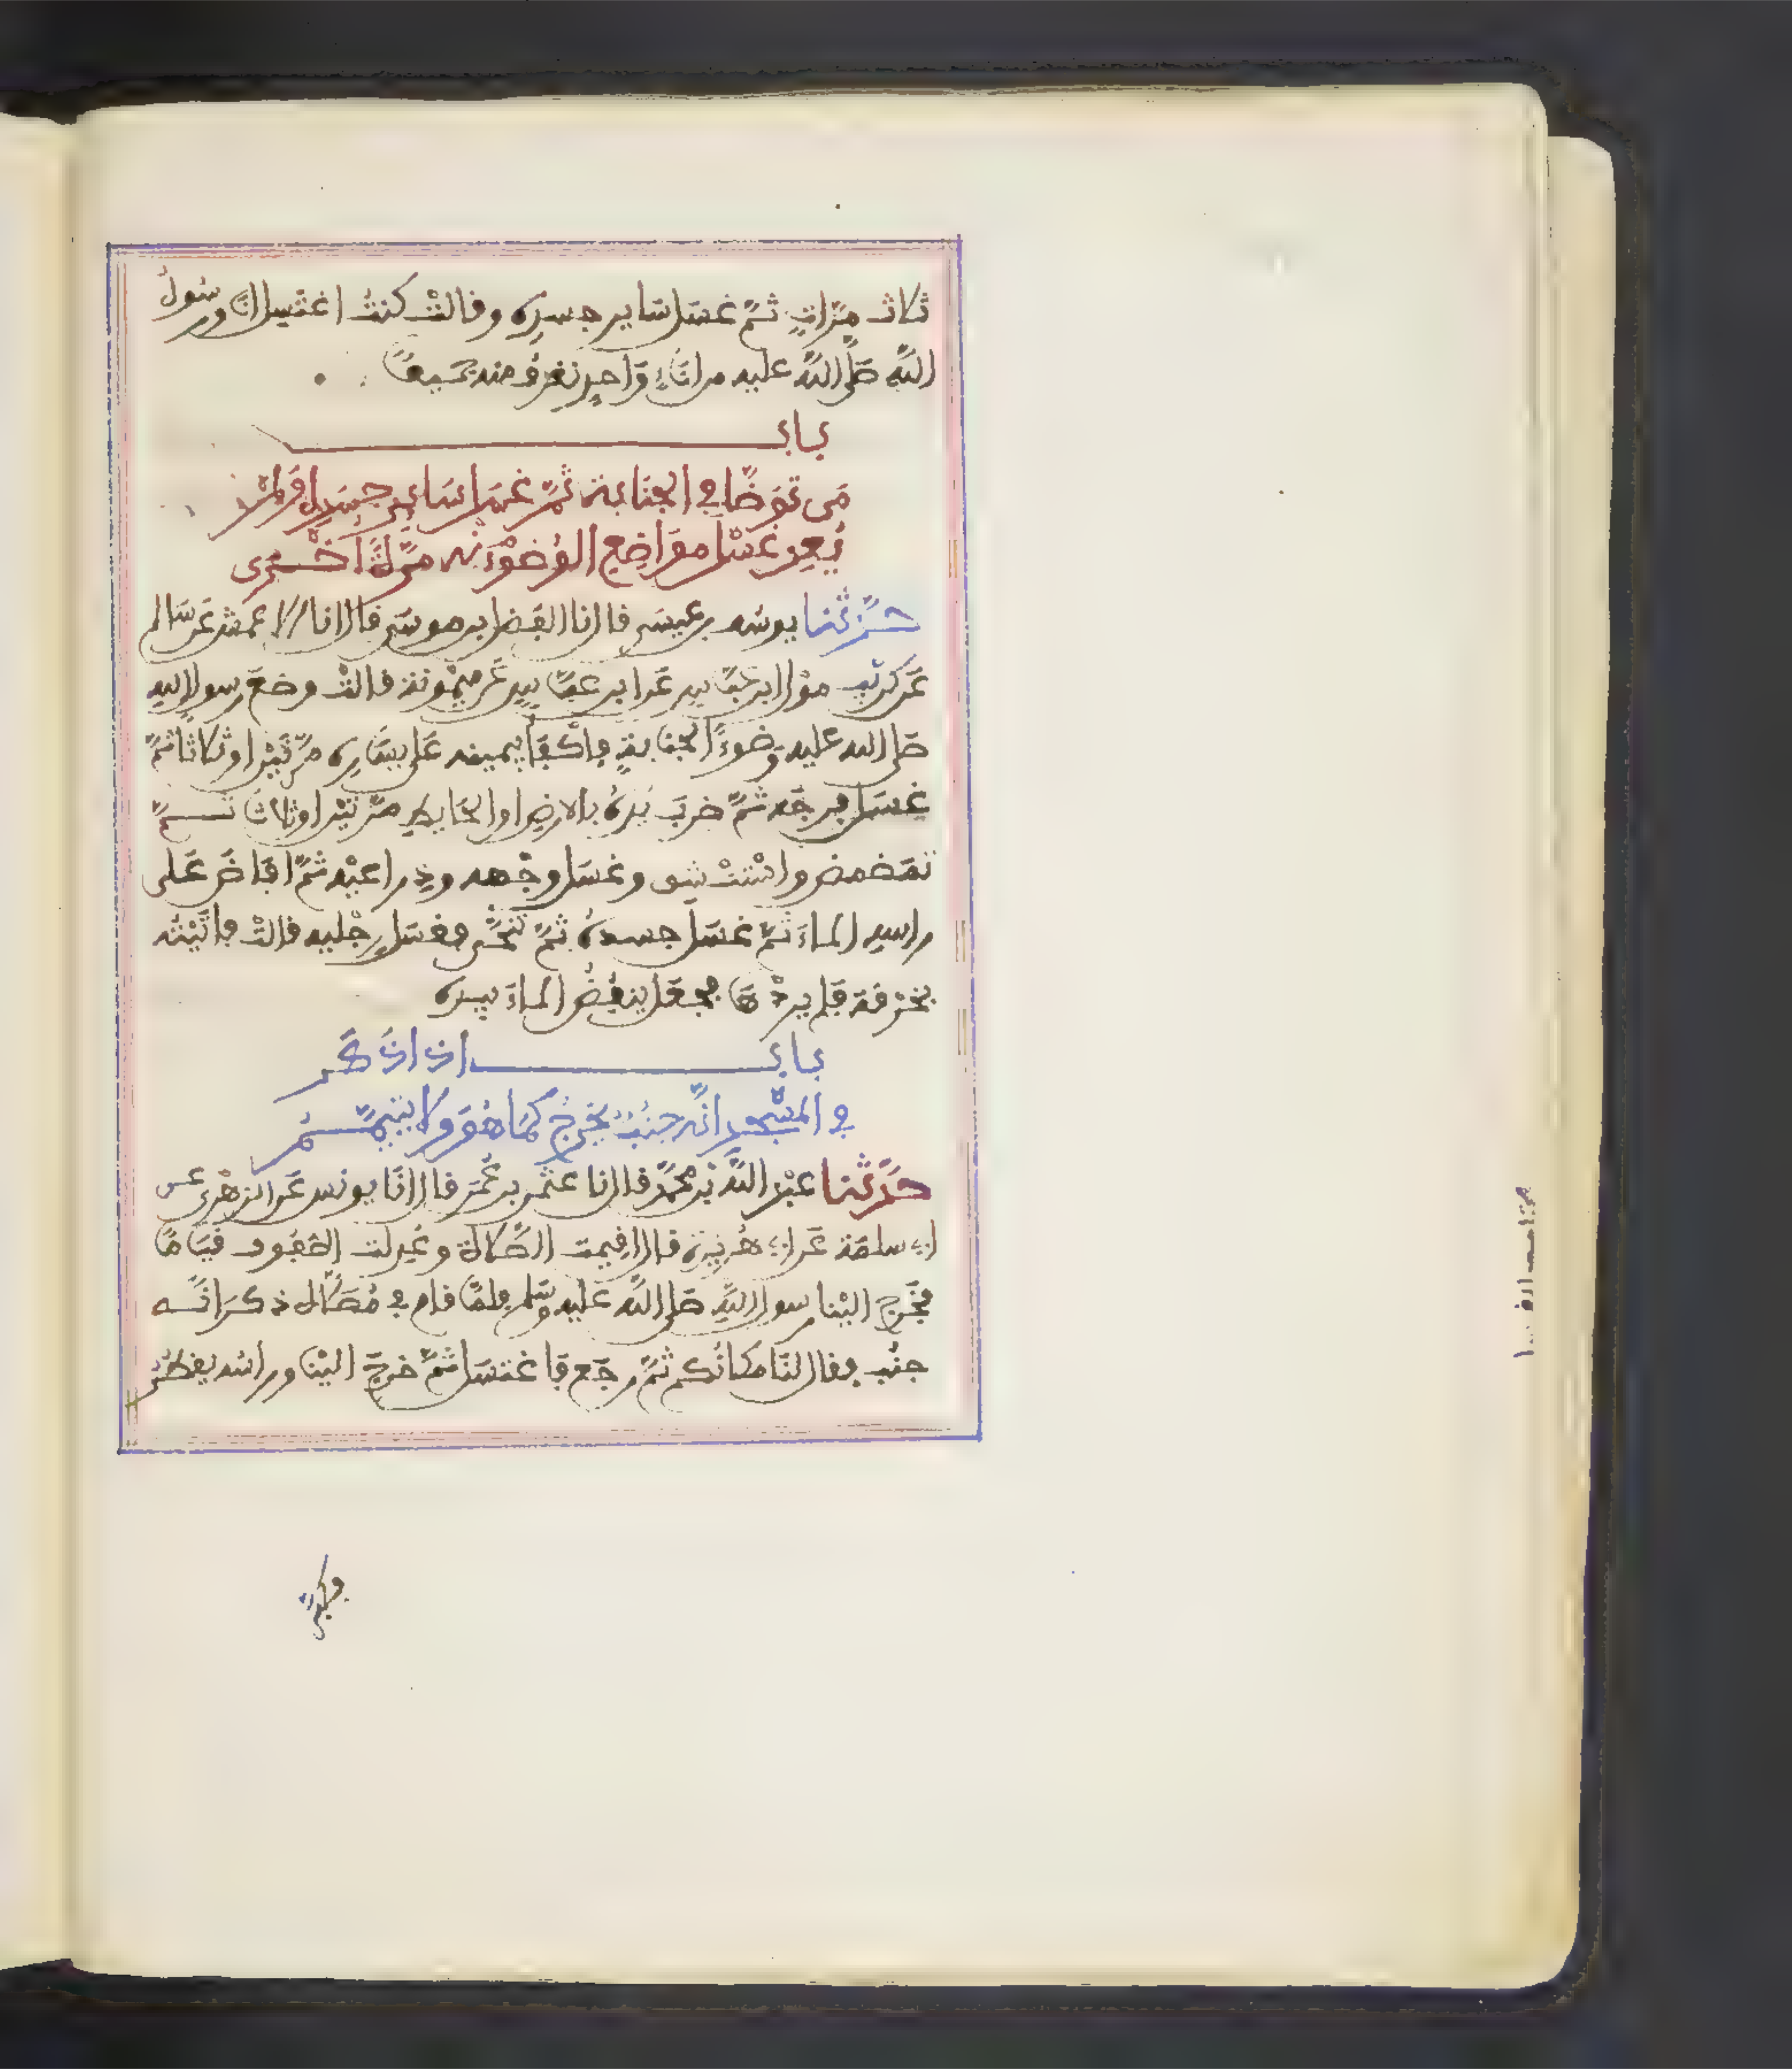 ثلاث مرّاتٍ ثمّ غسَل سَاير جسدِه وقالتْ كنتُ اغتسِل انَا ورسُولُ
اللَّهِ صَلَّى اللَّه عليه من انَاءٍ وَاحِدٍ نغرِفُ منه جَميعًا
بَابُ
مَن تَوَضَّا في الجنَابة ثمَّ غسَل سَايرَ جسَدِه وَلمْ
يُعِد غَسْل موَاضِع الوُضُوْءِ منْه مرَّةً اخْرى
حدَّثنا يوسف بن عيسَى قال انا الفَضل بن موسَى قال انا الاعمش عَن سَالم
عَن كرَيْب موْلى ابن عبَّاسٍ عَن ابن عبَّاسٍ عَن ميْمُونة قالتْ وضعَ رسول اللهِ
صَلى الله عليه وَضوءَ الجنَابةِ فاكْفَأ بيمينه عَلى يسَارِه مرّتَيْن او ثلاثا ثمَّ
غسَل فرجَه ثمَّ ضربَ يَدهُ بالارضِ او الحَايطِ مرّتيْن او ثلاثَا ثـــمَّ
تمَضمض واسْتنْشق وغسَل وجْهه وذِراعيْه ثمَّ افَاضَ عَلى
راسِه المَاءَ ثمَّ غسَلَ جسدهُ ثمَّ تنَحَّى فغسَل رِجْليه قالتْ فاتَيْته
بخرْقة فَلم يردْهَا فجعَل ينفُضُ المَاءَ بيده
بَابُ اذا ذَكَر
في المسْجدِ انَّه جنُبٌ يَخرجُ كمَا هُوَ ولا يتيمَّــمُ
حدَّثنا عبْد اللَّه بْن محمَّد قال انا عثمن بن عُمَر قال انَا يونس عَن الزهْرِي عن
ابي سلمَة عَن ابي هُرَيرَة قال اقيمت الصَّلاة وعُدِلت الصّفوف قيَامًا
فخَرجَ اليْنا رسول اللَّهِ صَلى اللَّه عليه وسَلم فلمَّا قام في مُصَلَّاه ذكَرَ انَّـه
جنُب فقال لنَا مكانَكم ثمَّ رجَع فَاغتسَل ثمَّ خرجَ اليْنا وراسُه يقطُر
فكبَّر